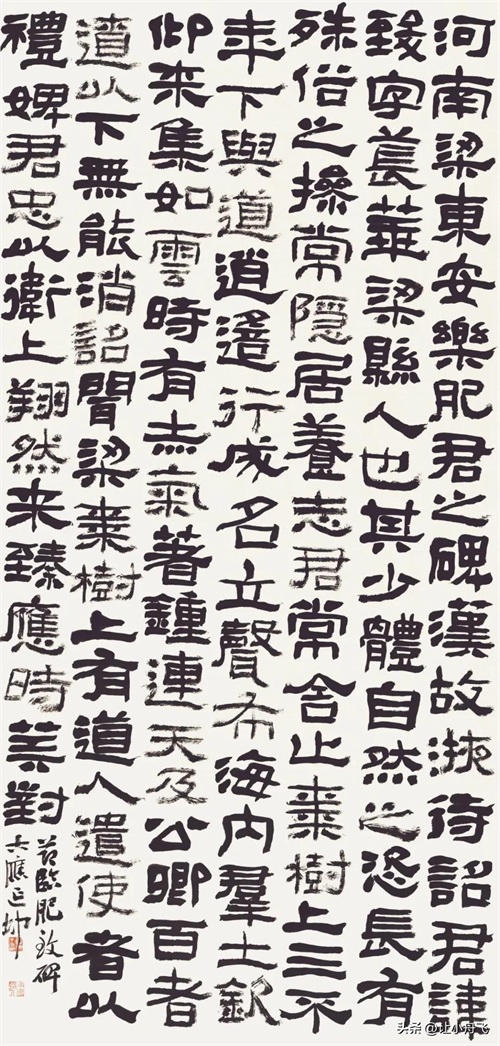 河南梁東安樂肥君之碑漢故掖待詔君諱
致字萇華梁縣人也其少體自然之恣長有
殊俗之操常隱居養志君常舍止棗樹上三不
年下與道逍遙行成名立聲布海内羣士欽
仰来集如雲時有赤氣著鍾連天及公卿百者
遼以下無能消詔聞梁棗樹上有道人遣使者以
禮娉君忠以衛上翔然来臻應時荅對
節臨肥致碑
头条 @让小舟飞